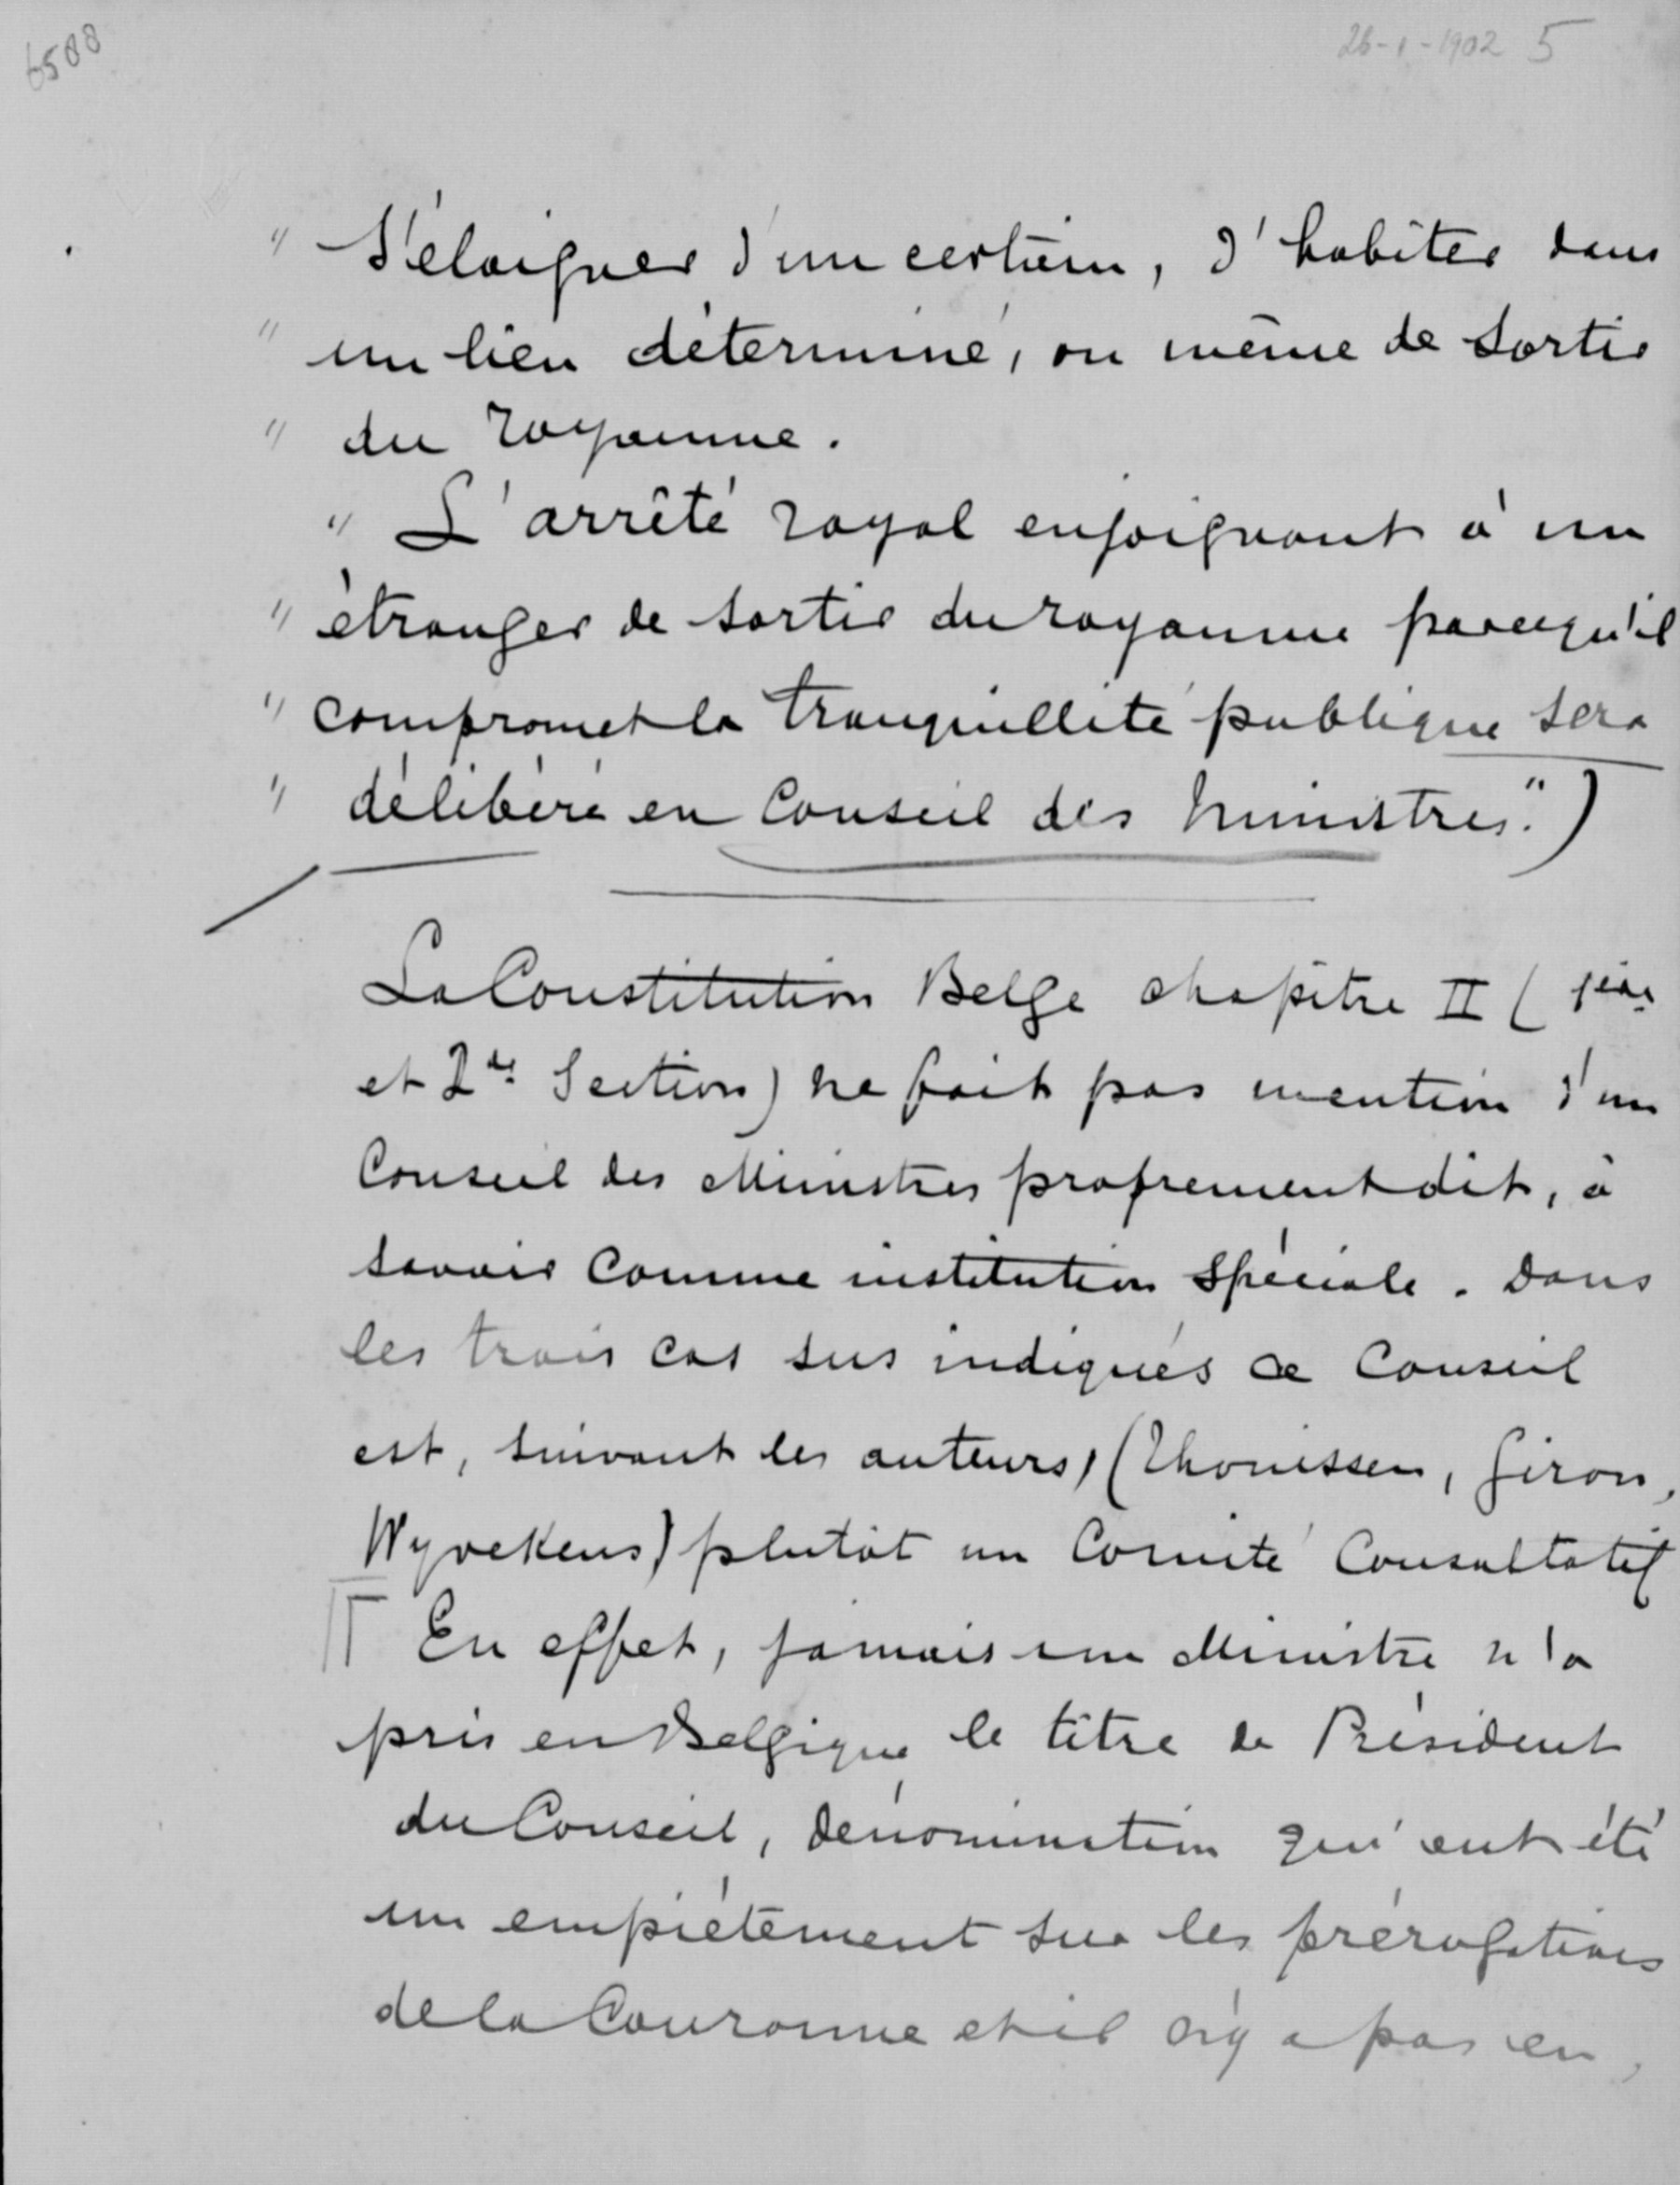 6588
26-1-1902 5
" S'éloigner d'un certain, d'habiter dans
" un lieu déterminé, ou même de sortir
" du royaume.
" L'arrêté royal enjoignant à un
" étranger de sortir du royaume parcequ'il
" compromet la tranquillité publique sera
" délibéré en Conseil des Ministres.")
La Constitution Belge chapitre II (1ière
et 2de Section) ne fait pas mention d'un
Conseil des Ministres proprement dit, à
savoir comme institution spéciale. Dans
les trois cas sus indiqués ce Conseil
est, suivant les auteurs, (Thonissen, Giron,
Wyvekens) plutôt un Comité Consultatif
En effet, jamais un Ministre n'a
pris en Belgique le titre de Président
du Conseil, dénomination qui eut été
un empiétement sur les prérogatives
de la Couronne et il n'y a pas eu,